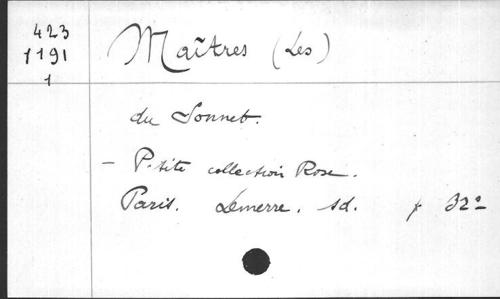 423
1191
1
Maîtres (Les)
du Sonnet.
- Petite collection Rose.
Paris. Lemerre. sd. 32º